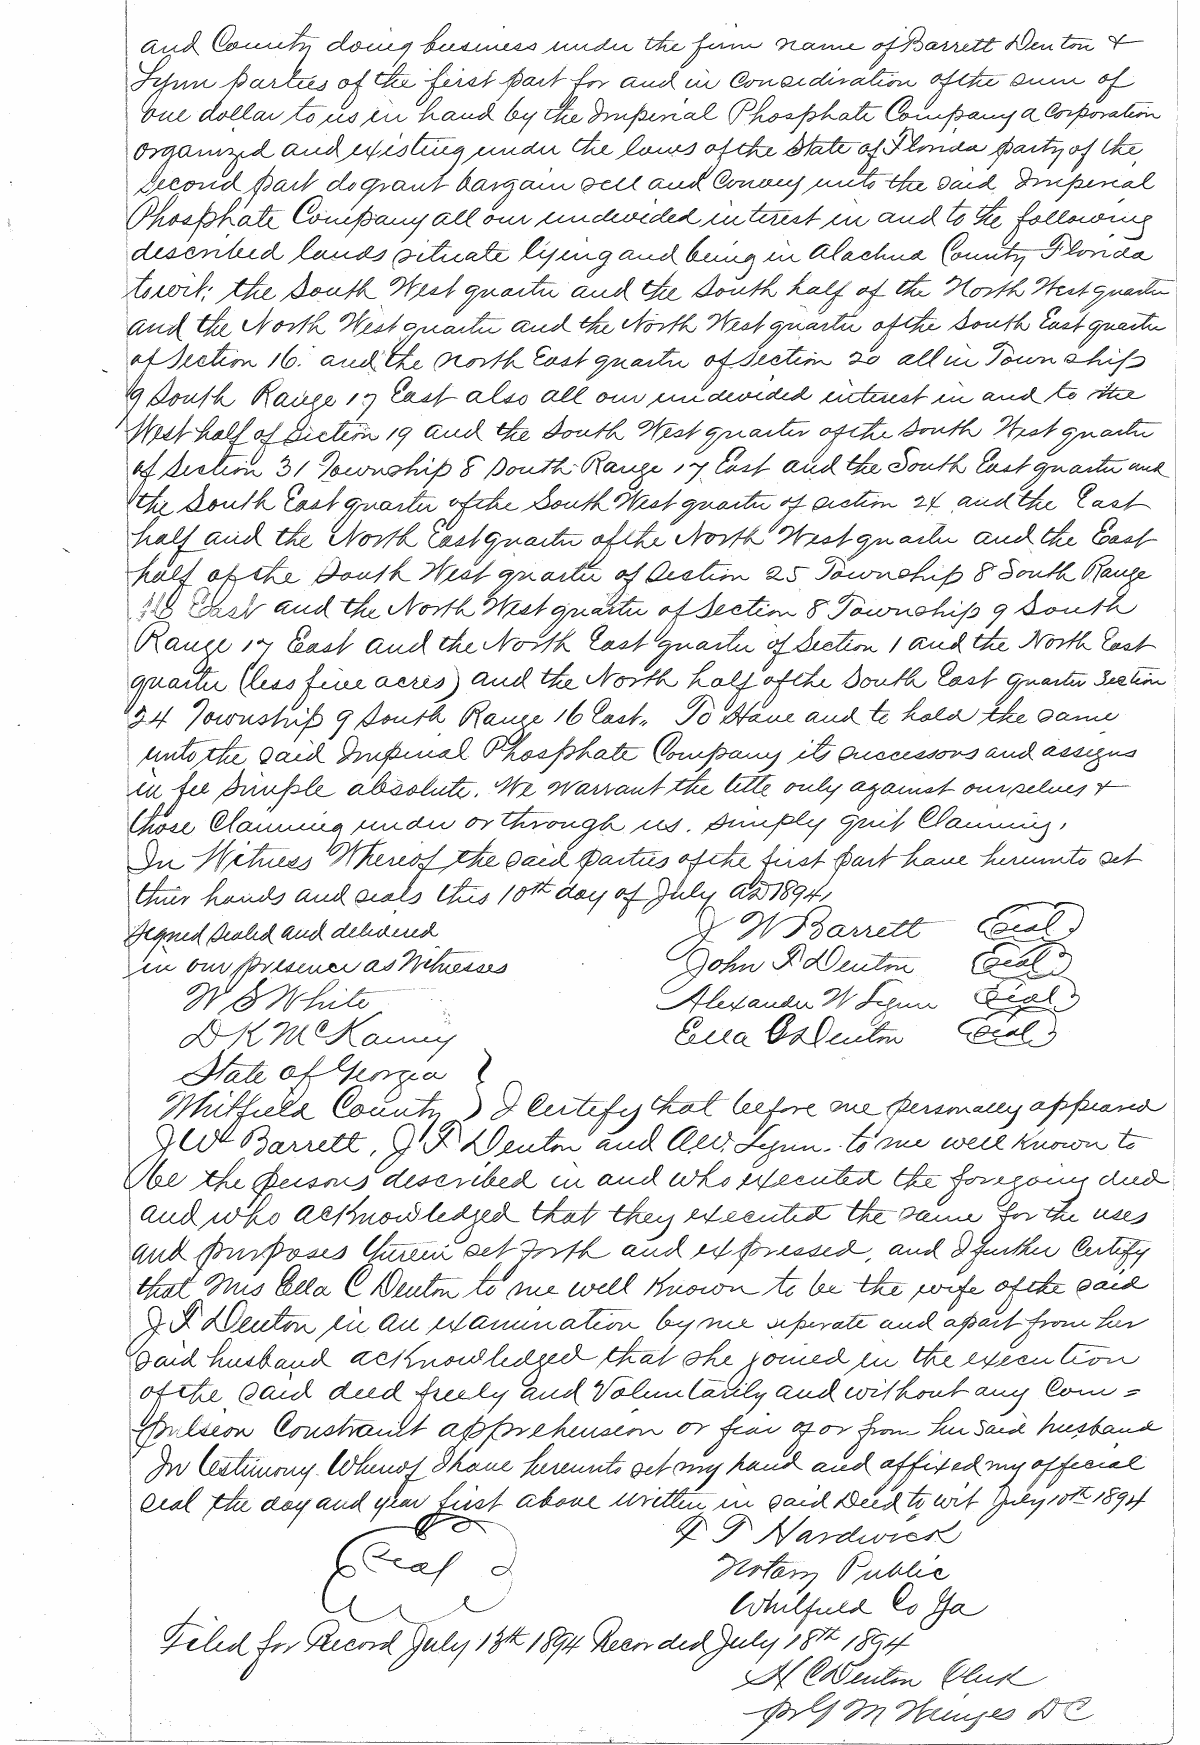 and County doing business under the firm name of Barrett Denton &
Lynn parties of the first part for and in Considiration of the sum of
one dollar to us in hand by the Imperial Phosphate Company a Corporation
organized and existing under the laws of the State of Florida party of the
second part do grant bargain sell and Convey unto the said Imperial
Phosphate Company all our undivided interest in and to the following
described lands situate lying and being in Alachua County Florida
towit: the South West quarter and the South half of the North West quarter
and the North West quarter and the North West quarter of the South East quarter
of Section 16. and the north East quarter of Section 20 all in Township
9 South Range 17 East also all our undivided interest in and to the
West half of Section 19 and the South West quarter of the South West quarter
of Section 31 Township 8 South Range 17 East and the South East quarter and
the South East quarter of the South West quarter of section 24 and the East
half and the North East quarter of the North West quarter and the East
half of the South West quarter of Section 25 Township 8 South Range
16 East and the North West quarter of Section 8 Township 9 South
Range 17 East and the North East quarter of Section 1 and the North East
quarter (less five acres) and the North half of the South East quarter Section
24 Township 9 South Range 16 East. To Have and to hold the same
unto the said Imperial Phosphate Company its successors and assigns
in fee Simple absolute. We warrant the title only against ourselves &
those Claiming under or through us. Simply quit Claiming.
In Witness Whereof the said parties of the first part have hereunto set
thier hands and seals this 10th day of July AD 1894,
Signed Sealed and delivered
in our presence as Witnesses
J W Barrett (Seal)
John F Denton (Seal)
W S White
Alexander W Lynn (Seal)
D K McKamy
Ella C Denton (Seal)
State of Georgia }
Whitfield County } I Certify that before me personally appeared
J W Barrett, J F Denton and A.W. Lynn. to me well known to
be the persons described in and who executed the foregoing deed
and who acknowledged that they executed the same for the uses
and purposes therein set forth and expressed, and I further Certify
that Mrs Ella C Denton to me well Known to be the wife of the said
J F Denton in an examination by me seperate and apart from her
said husband acknowledged that she joined in the execution
of the said deed freely and Voluntarily and without any Com=
pulsion Constraint apprehension or fear of or from her said husband
In Testimony Whereof I have hereunto set my hand and affixed my official
seal the day and year first above written in said Deed to wit July 10th 1894
F T Hardwick
(Seal)
Notary Public
Whitfield Co Ga
Filed for Record July 13th 1894 Recorded July 18th 1894
H C Denton Clerk
M DC